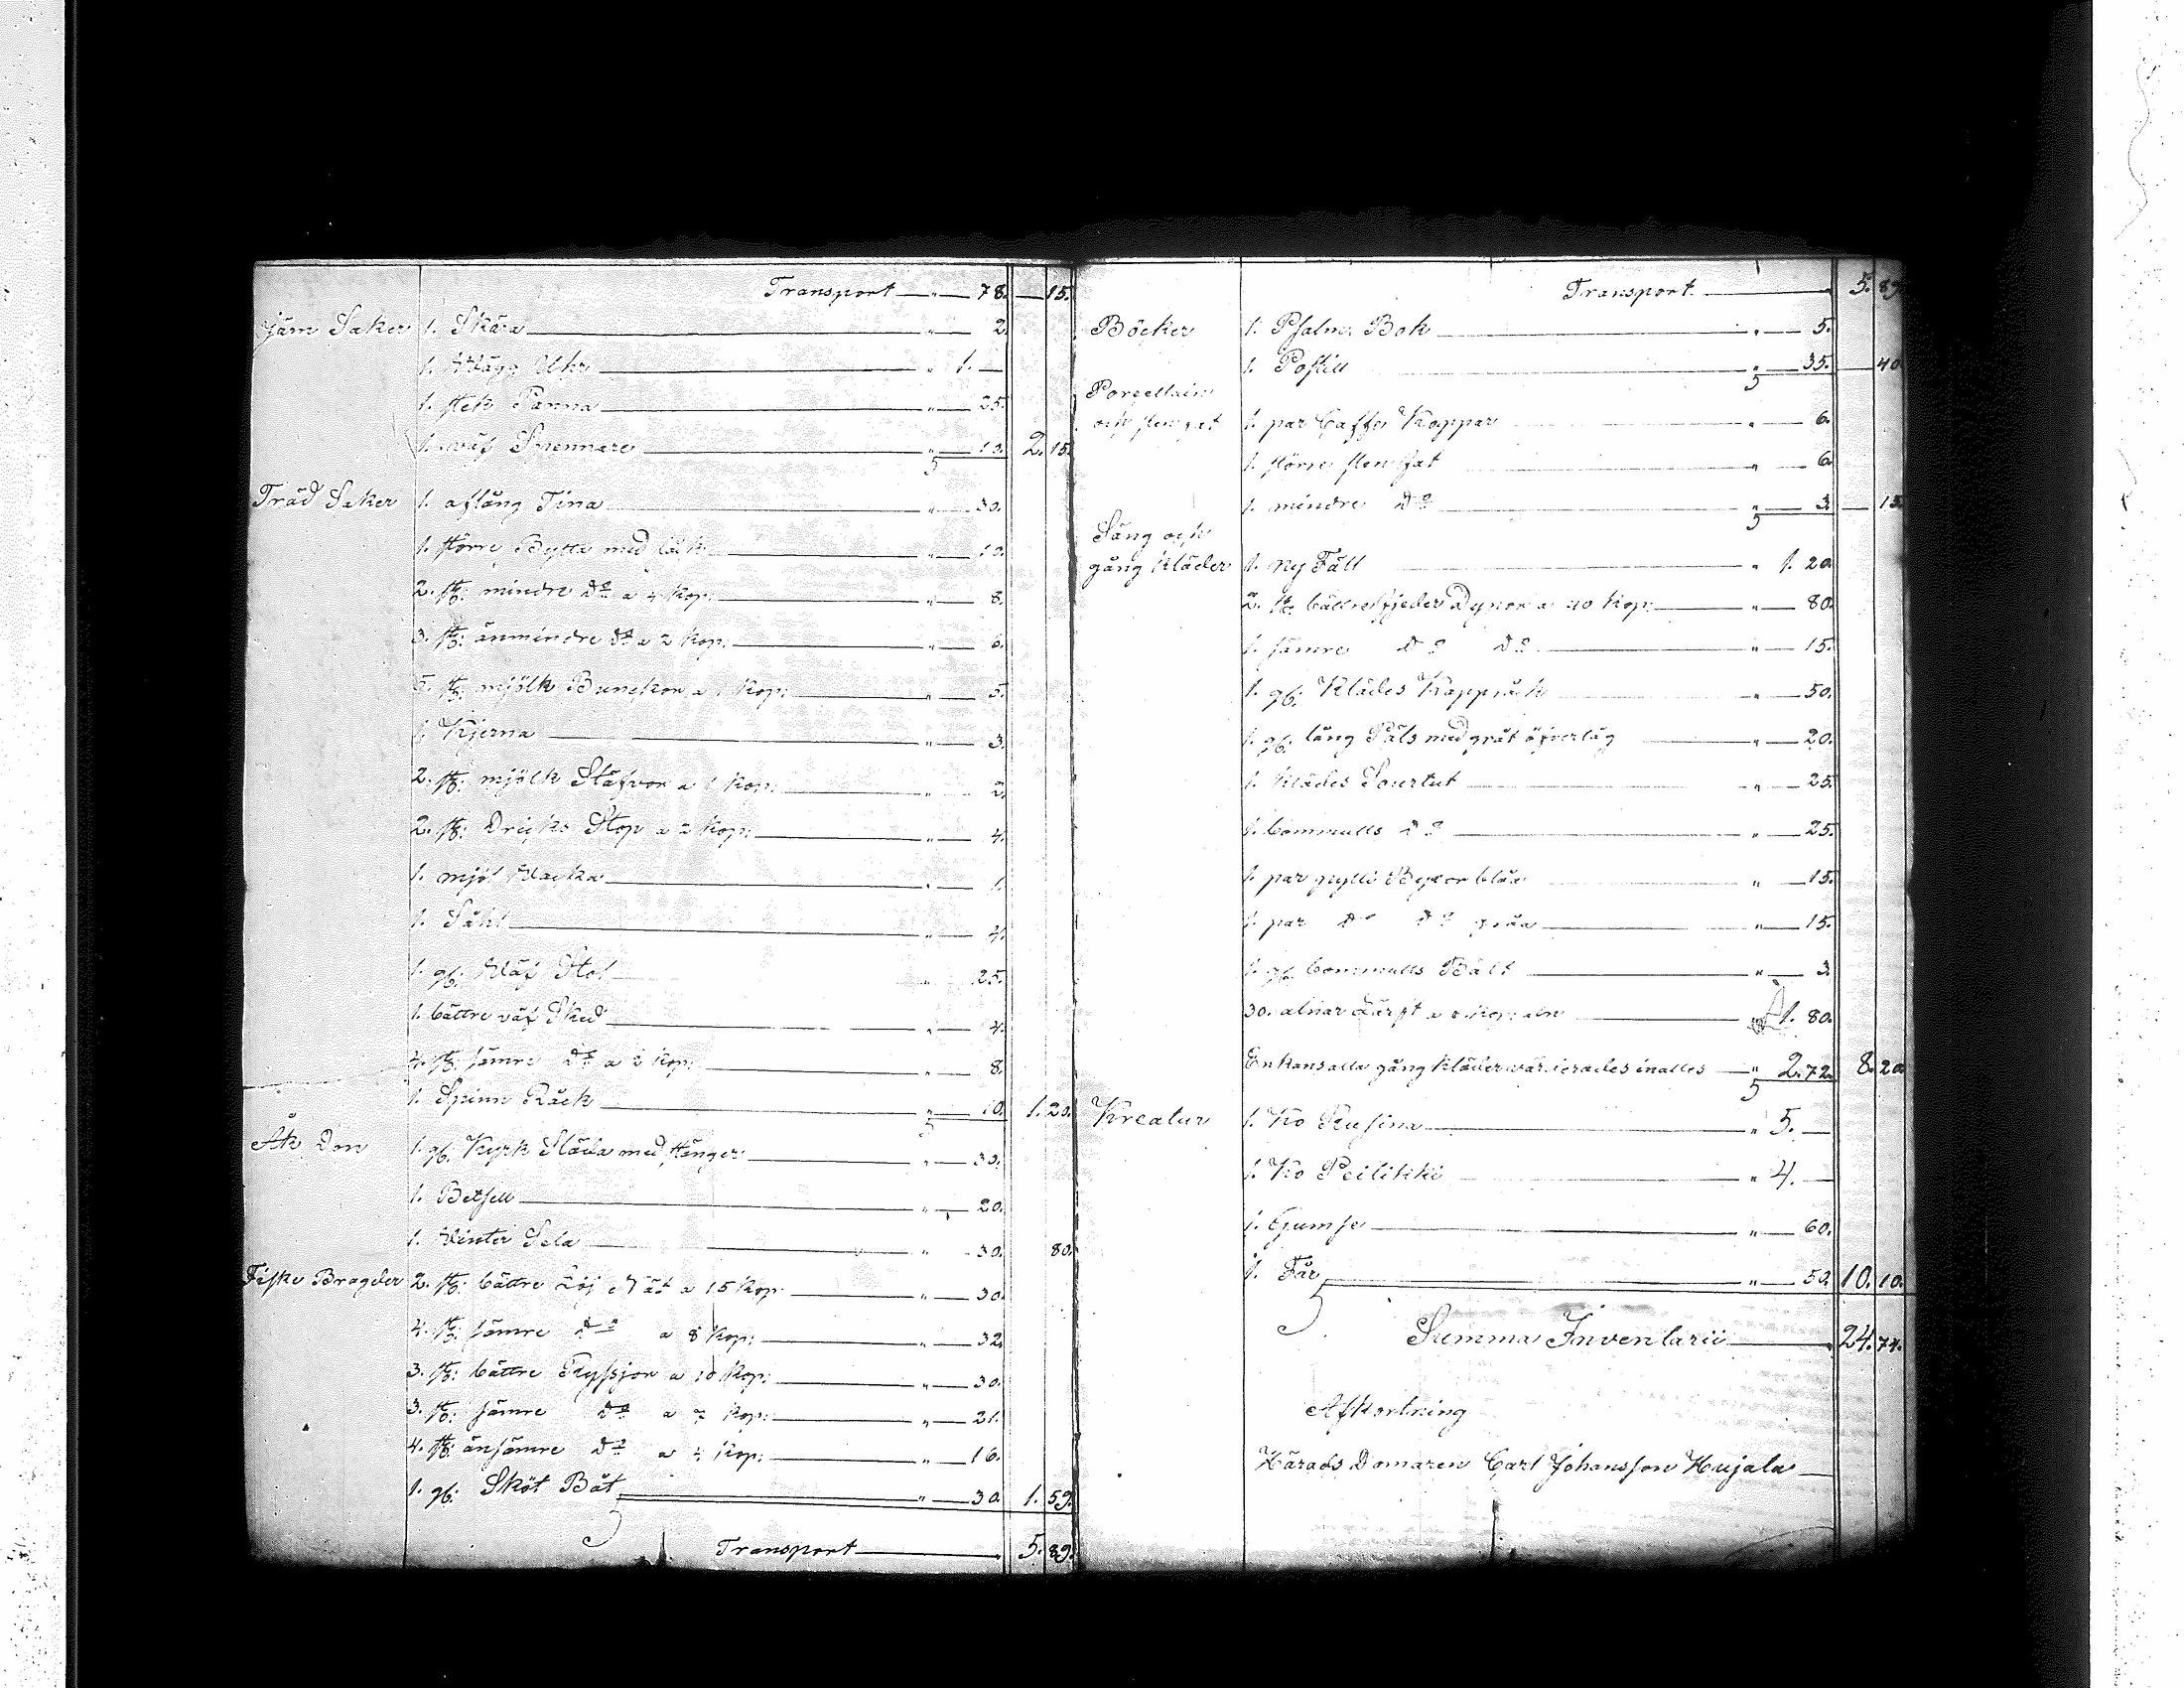 Transport — " — 78. — 15.
Järn Saker 1. Skära — " — 2.
1. Wägg Uhr — " 1. —
1. stek Panna — " — 25.
1. väf Spennare — " — 10. 2. 15.
Träd Saker 1. aflång Tina — " — 30.
1. större Bytta med låck — " — 10.
2. st: mindre do a 4 Kop: — " — 8.
3. st: änmindre do a 2 Kop: — " — 6.
5. st: mjölk Bunckor a 1 Kop: — " — 5.
1. Kjerna — " — 3.
2. st: mjölk Stäfvor a 1 Kop: — " — 2.
2. st: Dricks Stop a 2 Kop: — " — 4.
1. mjöl Wacka — " — 1.
1. Såhl — " — 4.
1. gl: Wäf Stol — " — 25.
1. bättre väf Sked — " — 4.
4. st: sämre do a 2 Kop: — " — 8.
1. Spinn Råck — " — 10. 1. 20.
Åk Don 1. gl: Kyrk Släda med stänger — " — 30.
1. Betsell — " — 20.
1. Winter Sela — " — 30. 80.
Fiske Bragder 2. st: bättre Löj Nät a 15 Kop: — " — 30.
4. st: sämre do a 8 Kop: — " — 32.
3. st: bättre Ryssjor a 10 Kop: — " — 30.
3. st: sämre do a 7 Kop: — " — 21.
4. st: änsämre do a 4 Kop: — " — 16.
1. gl: Sköt Båt — " — 30. 1. 59.
Transport — 5. 89.
Transport — 5. 89.
Böcker 1. Psalm Bok — " — 5.
1. Postill — " — 35. — 40
Porcellain
och stenfat 1. par Caffe Koppar — " — 6.
1. större stenfat — " — 6
1. mindre do — " — 3. — 15.
Säng och
gång Kläder 1. ny Fäll — " 1. 20
2. st: bättre fjeder Dynor a 40 Kop: — " — 80.
1. sämre do do — " — 15.
1. gl: Klädes Kappråck — " — 50.
1. gl: lång Päls med gråt öfverlåg — " — 20.
1. Klädes Sourtut — " — 25.
1. Commulls do — " — 25.
1. par grylli Byxor blåa — " — 15.
1. par do do gråa — " — 15.
1. gl: Commulls Bält — " — 3.
30. alnar Lärft a 6 Kop: aln — 1. 80.
Enkans alla gång Kläder värderades inalles — " 2. 72. 8. 20.
Kreatur 1. Ko Rusina — " 5. —
1. Ko Peilikki — " 4. —
1. Gumse — " — 60.
1. Får — " — 50. 10. 10.
Summa Inventarii — 24. 74.
Afkortning
Härads Domaren Carl Johansson Hujala —